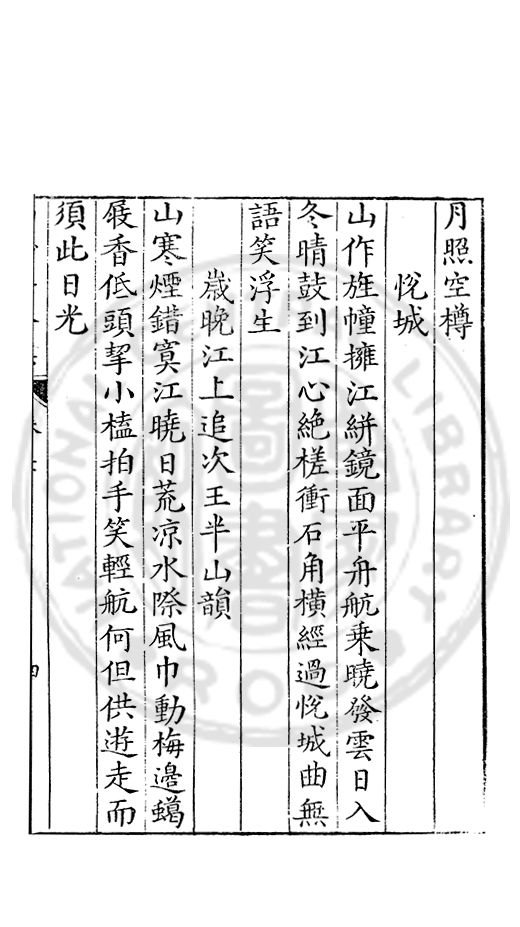 月照空樽
悅城
山作旌幢擁江絣鏡面平舟航乗曉發雲日入
冬晴鼓到江心絶槎衝石角橫經過悅城曲無
語笑浮生
嵗晚江上追次王半山韻
山寒煙錯寞江曉日荒凉水際風巾動梅邉蠟
屐香低頭挈小榼拍手笑輕航何但供遊走而
須此日光
四
NATIONAL LIBRARY